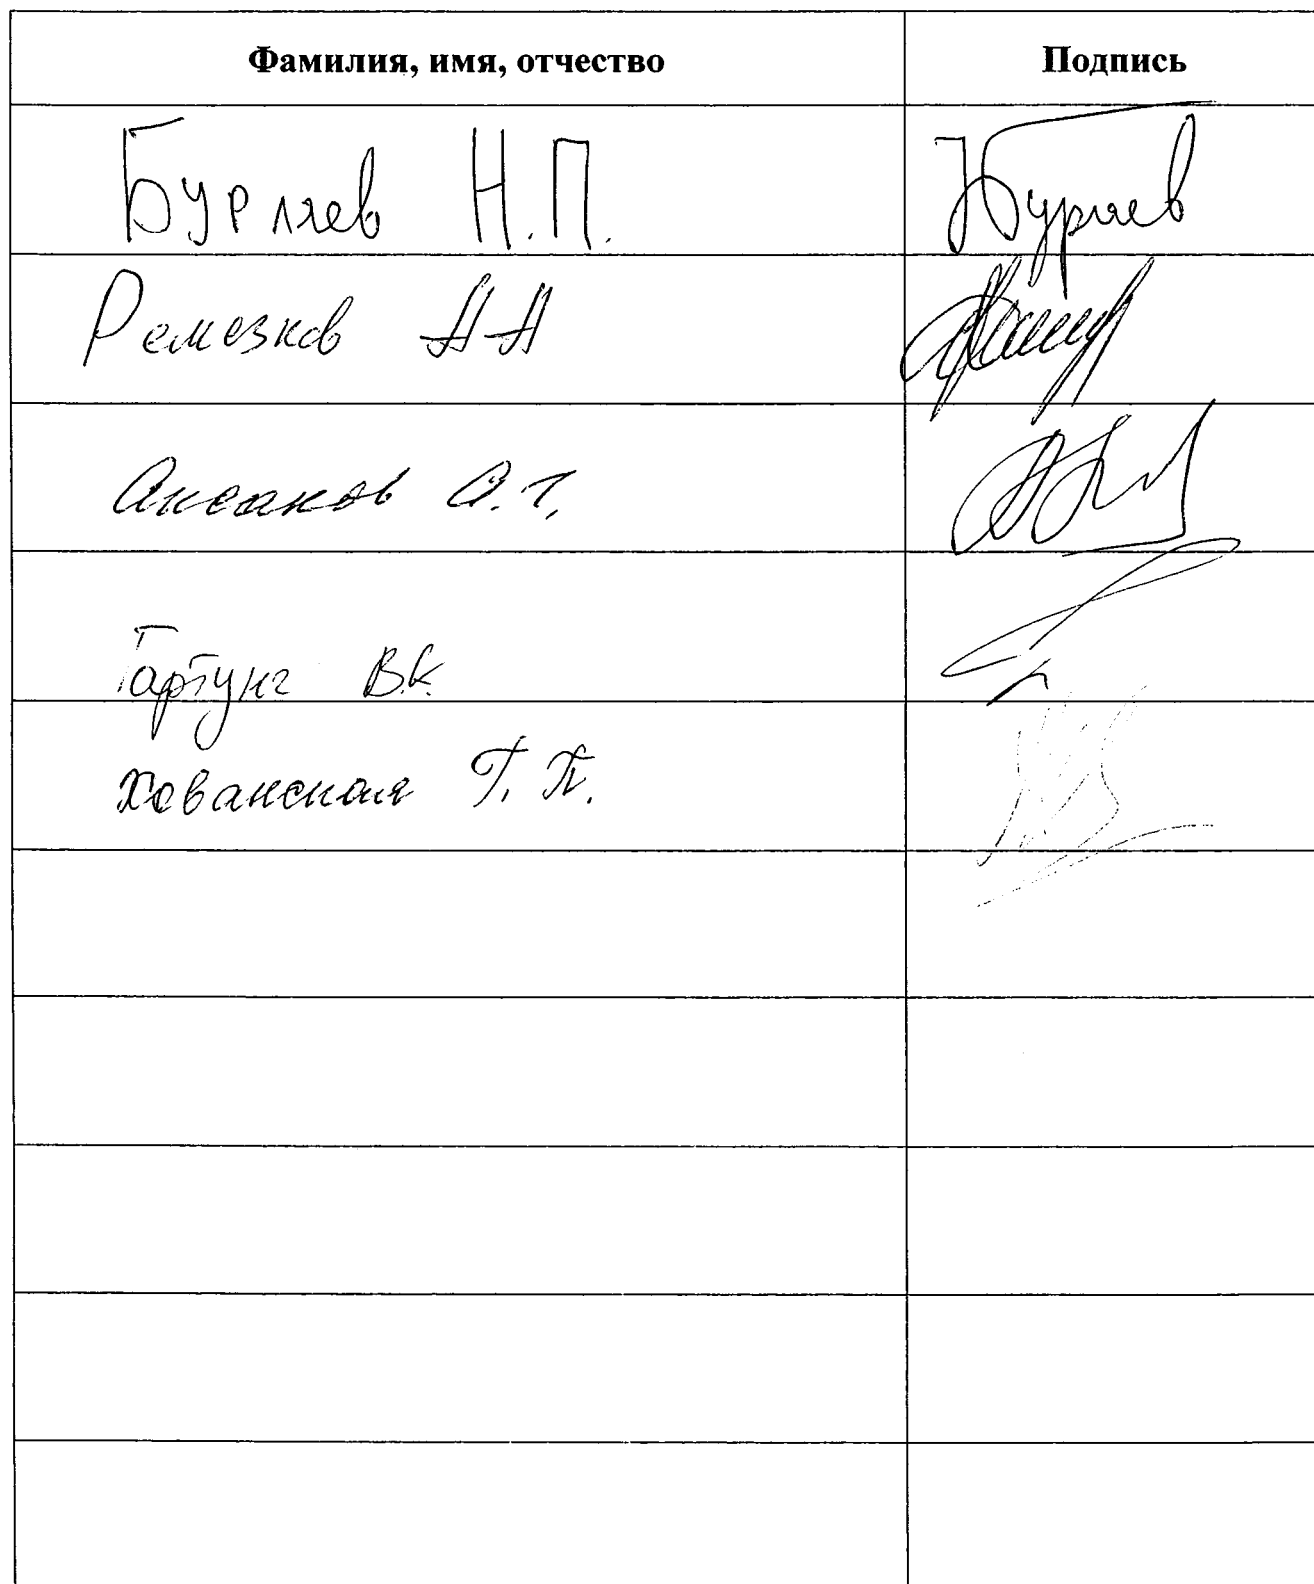 Фамилия, имя, отчество Подпись
Бурляев Н.П. Бурляев
Ремезков АА
Аксаков А.Г.
Гартунг В.К.
Хованская Г.П.